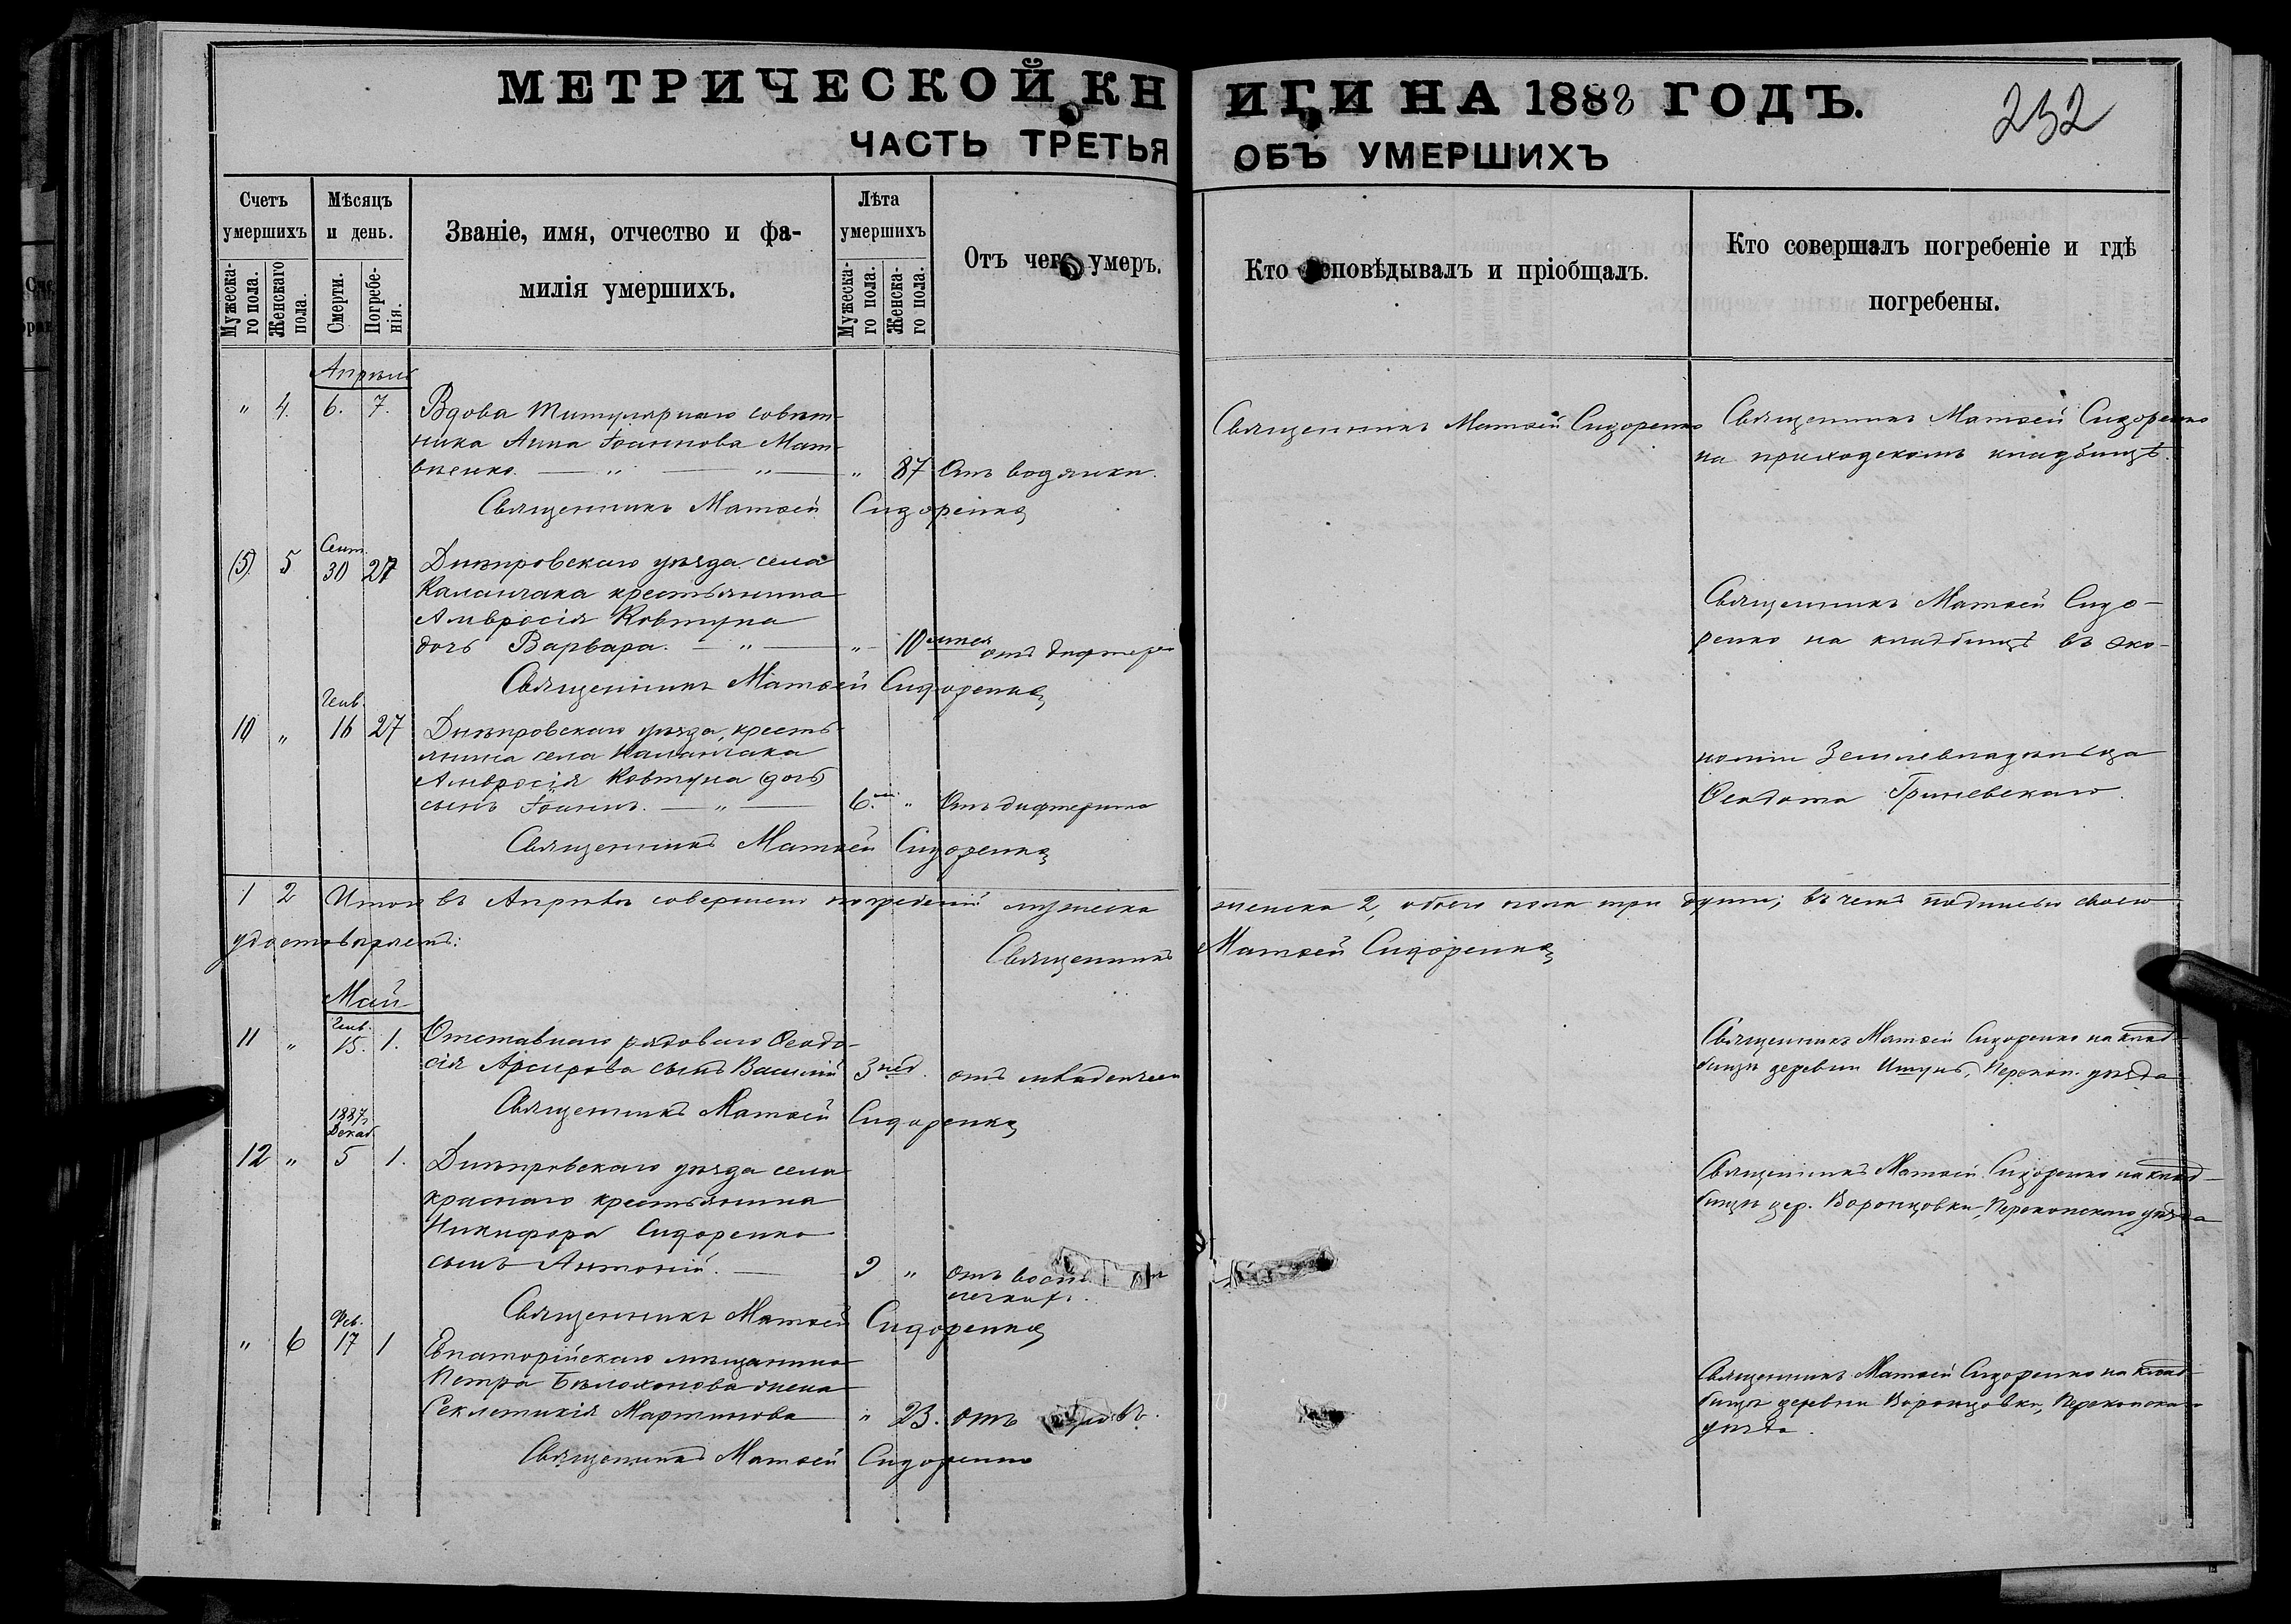 МЕТРИЧЕСКОЙ КНИГИ НА 1888 ГОДЪ.
232
ЧАСТЬ ТРЕТЬЯ ОБЪ УМЕРШИХЪ
Счетъ умершихъ
Мужеска-го пола.
Женскаго пола.
Мѣсяцъ и день.
Смерти.
Погребе-нія.
Званіе, имя, отчество и фа-
милія умершихъ.
Лѣта умершихъ
Мужеска-го пола.
Женска-го пола.
Отъ чего умеръ.
Кто исповѣдывалъ и пріобщалъ.
Кто совершалъ погребеніе и гдѣ
погребены.
Апрѣль
" 4. 6. 7. Вдова Титулярнаго совѣт-
ника Анна Іоаннова Мат-
вѣенко. — " — " — " 87 Отъ водянки.
Священникъ Матѳей Сидоренко
Священникъ Матѳей Сидоренко
на приходскомъ кладбищѣ.
Священникъ Матѳей Сидоренко
Сент.
(5) 5 30 27 Днѣпровскаго уѣзда села
Каланчака крестьянина
Амвросія Ковтуна
дочь Варвара. — " — " 10 лѣтъ отъ дифтер
Священникъ Матѳей Сидоренко
Священникъ Матѳей Сидо-
ренко на кладбищѣ въ эко-
Генв.
10 " 16 27 Днѣпровскаго уѣзда, кресть-
янина села Каланчака
Амвросія Ковтуна (дочь)
сынъ Іоаннъ. — " — 6. " Отъ дифтерита
Священникъ Матѳей Сидоренко
номіи Землевладѣльца
Ѳеодота Гриневскаго.
1 2 Итого въ Апрѣлѣ совершено погребеній мужеска женска 2, обоего пола три души; въ чемъ подписью своею
удостовѣряетъ:
Священникъ Матѳей Сидоренко
Май
Генв.
11 " 15. 1. Отставнаго рядоваго Ѳеодо-
сія сынъ Василій 3 нед. отъ младенчес
Священникъ Матѳей Сидоренко
Священникъ Матѳей Сидоренко на клад-
бищѣ деревни Ишунь, Перекоп. уѣзда
1887г.
Декаб.
12 " 5 1. Днѣпровскаго уѣзда села
Краснаго крестьянина
Никифора Сидоренко
сынъ Антоній. — 2 " отъ восп
легкихъ.
Священникъ Матѳей Сидоренко
Священникъ Матѳей Сидоренко на клад-
бищѣ дер. Воронцовки, Перекопскаго уѣзда
Фев.
" 6 17 1 Евпаторійскаго мѣщанина
Петра Бѣлоконова жена
Секлетикія Мартинова " 23. отъ
Священникъ Матѳей Сидоренко
Священникъ Матѳей Сидоренко на клад-
бищѣ деревни Воронцовки, Перекопска
уѣзда.